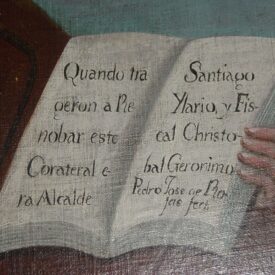 Quando tra
geron a Re
nobar este
Corateral e
ra Alcalde
Santiago
Ylario, y Fis
cal Christo-
bal Geronimo
Pedro Jose de
fecit